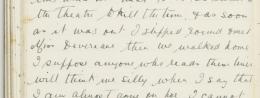 the Theatre to kill the time, & as soon
as it was out I slipped round & met
Miss Deverane then we walked home
I suppose anyone who reads these lines
will think me silly when I say that
I am almost gone on her. I cannot